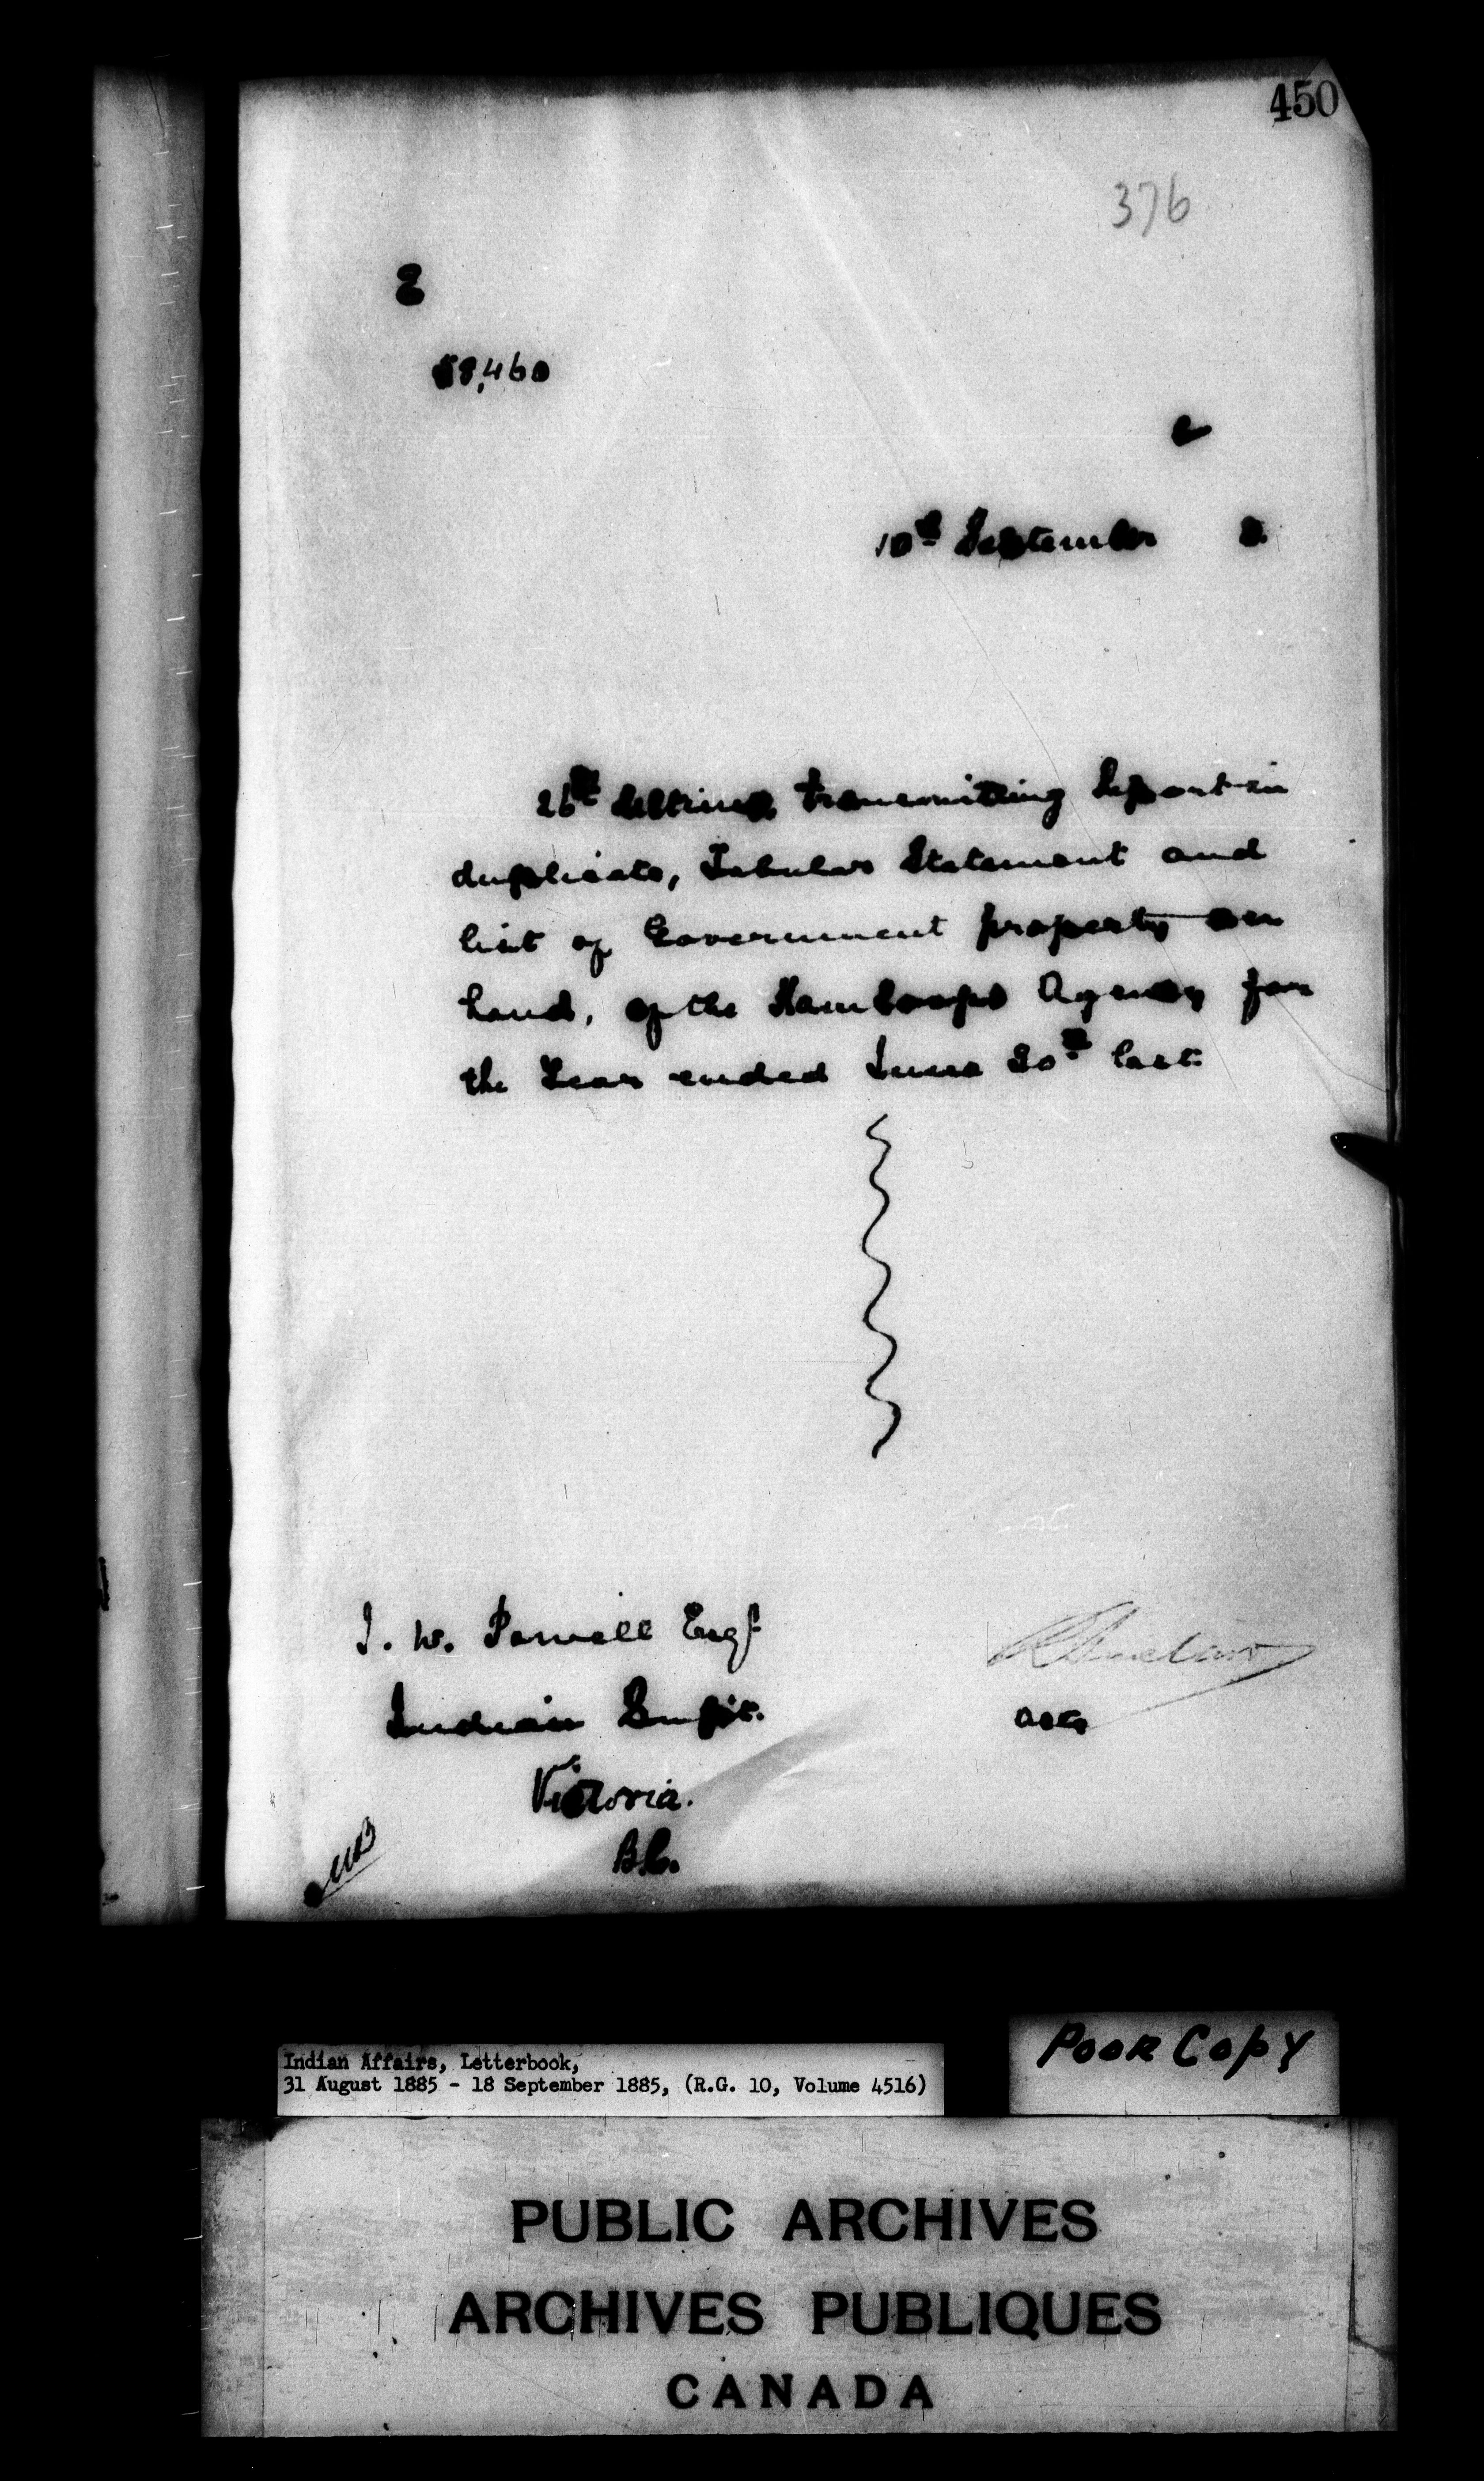 450
376
E
58,460
10th September 5.
26th ultimo, transmitting Report in
duplicate, Tabular Statement and
list of Government property on
hand, of the Kamloops Agency for
the Year ended June 30th last.
I. W. Powell Esq.
Indian Supt.
Victoria.
B.C.
R Sinclair
actg
Indian Affairs, Letterbook,
31 August 1885 - 18 September 1885, (R.G. 10, Volume 4516)
POOR COPY
PUBLIC ARCHIVES
ARCHIVES PUBLIQUES
CANADA